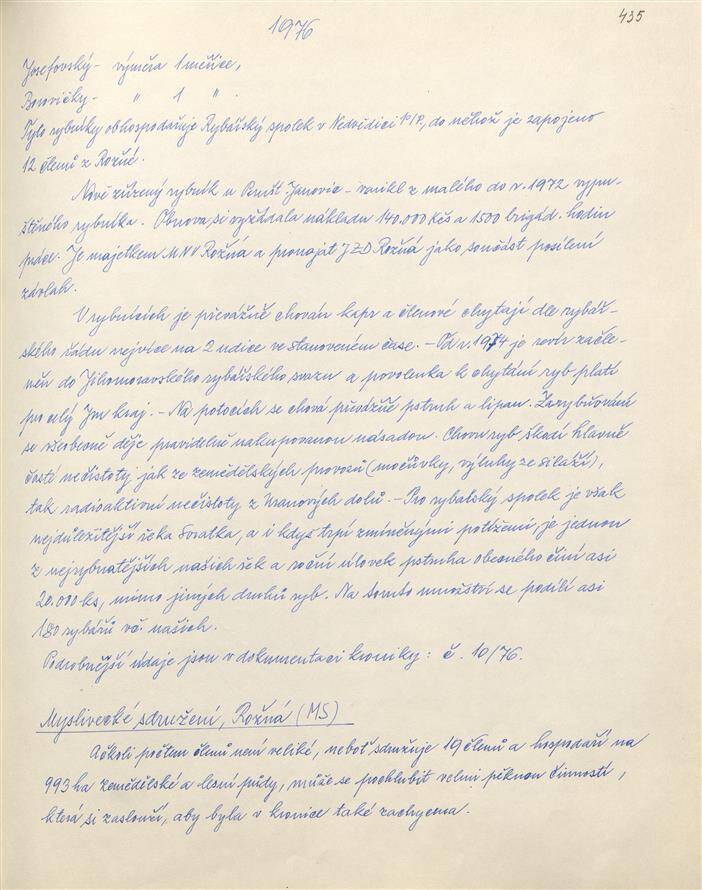 435
1976
Josefovský - výměra 1 měřice,
Borovičky - " 1 " .
Tyto rybníky obhospodařuje Rybářský spolek v Nedvědici P/P, do něhož je zapojeno
12 členů z Rožné.
Nově zřízený rybník u Penst. Janovic - vznikl z malého do r. 1972 vypu-
štěného rybníka. Obnova si vyžádala nákladu 140.000 Kčs a 1500 brigád. hodin
práce. Je majetkem MNV Rožná a pronajat JZD Rožná jako součást posílení
závlah.
V rybnících je převážně chován kapr a členové chytají dle rybář-
ského řádu nejvíce na 2 udice ve stanoveném čase. - Od r. 1974 je revír začle-
něn do Jihomoravského rybářského svazu a povolenka k chytání ryb platí
pro celý Jm kraj. - Na potocích se chová převážně pstruh a lipan. Zarybňování
se všeobecně děje pravidelně nakupovanou násadou. Chovu ryb škodí hlavně
časté nečistoty jak ze zemědělských provozů (močůvky, výluhy ze siláží),
tak radioaktivní nečistoty z Uranových dolů. - Pro rybářský spolek je však
nejdůležitější řeka Svratka, a i když trpí zmíněnými potížemi, je jednou
z nejrybnatějších našich řek a roční úlovek pstruha obecného činí asi
20.000 ks, mimo jiných druhů ryb. Na tomto množství se podílí asi
180 rybářů vč. našich.
Podrobnější údaje jsou v dokumentaci kroniky: č. 10/76.
Myslivecké sdružení, Rožná (MS)
Ačkoli počtem členů není veliké, neboť sdružuje 19 členů a hospodaří na
993 ha zemědělské a lesní půdy, může se pochlubit velmi pěknou činností,
která si zaslouží, aby byla v kronice také zachycena.